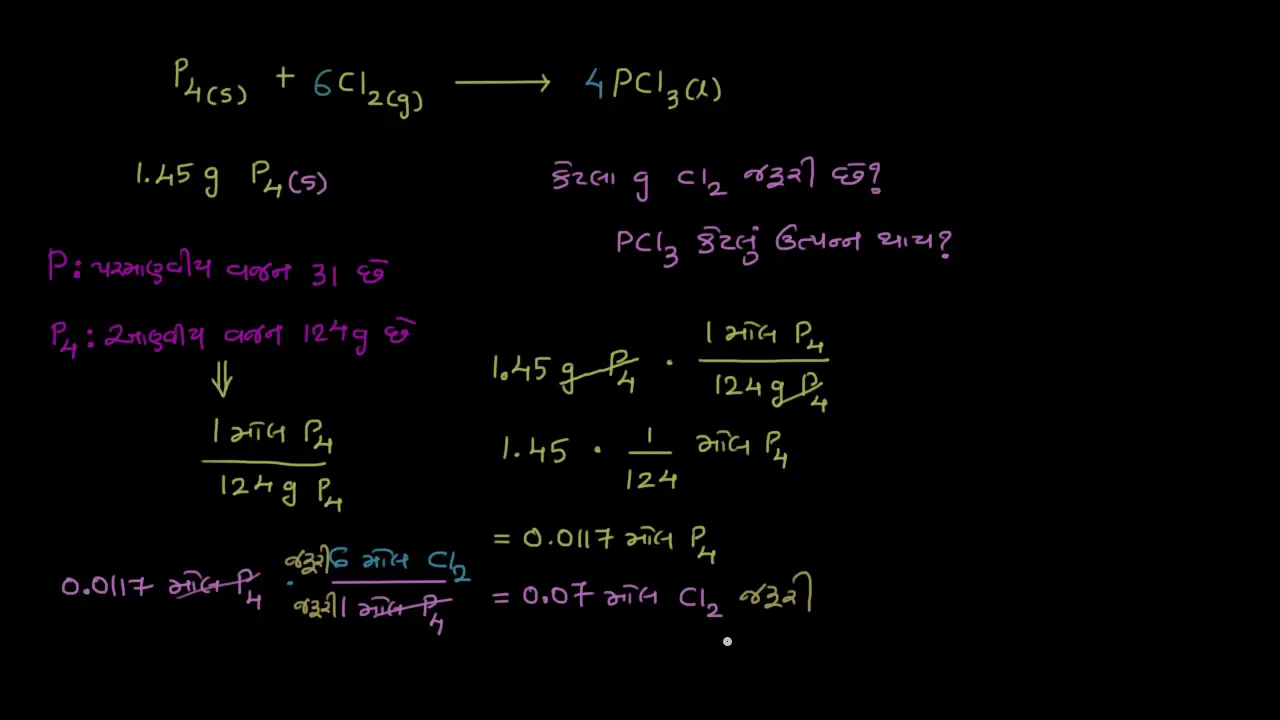 P4(s) + 6Cl2(g) ⟶ 4PCl3(l)
1.45 g P4(s)
કેટલા g Cl2 જરૂરી છે?
PCl3 કેટલું ઉત્પન્ન થાય?
P: પરમાણ્વીય વજન 31 છે
P4: આણ્વીય વજન 124g છે
⇓
1 મોલ P4
124 g P4
1.45 g P4 · 1 મોલ P4 / 124 g P4
1.45 · 1/124 મોલ P4
= 0.0117 મોલ P4
0.0117 મોલ P4 · જરૂરી 6 મોલ Cl2 / જરૂરી 1 મોલ P4 = 0.07 મોલ Cl2 જરૂરી